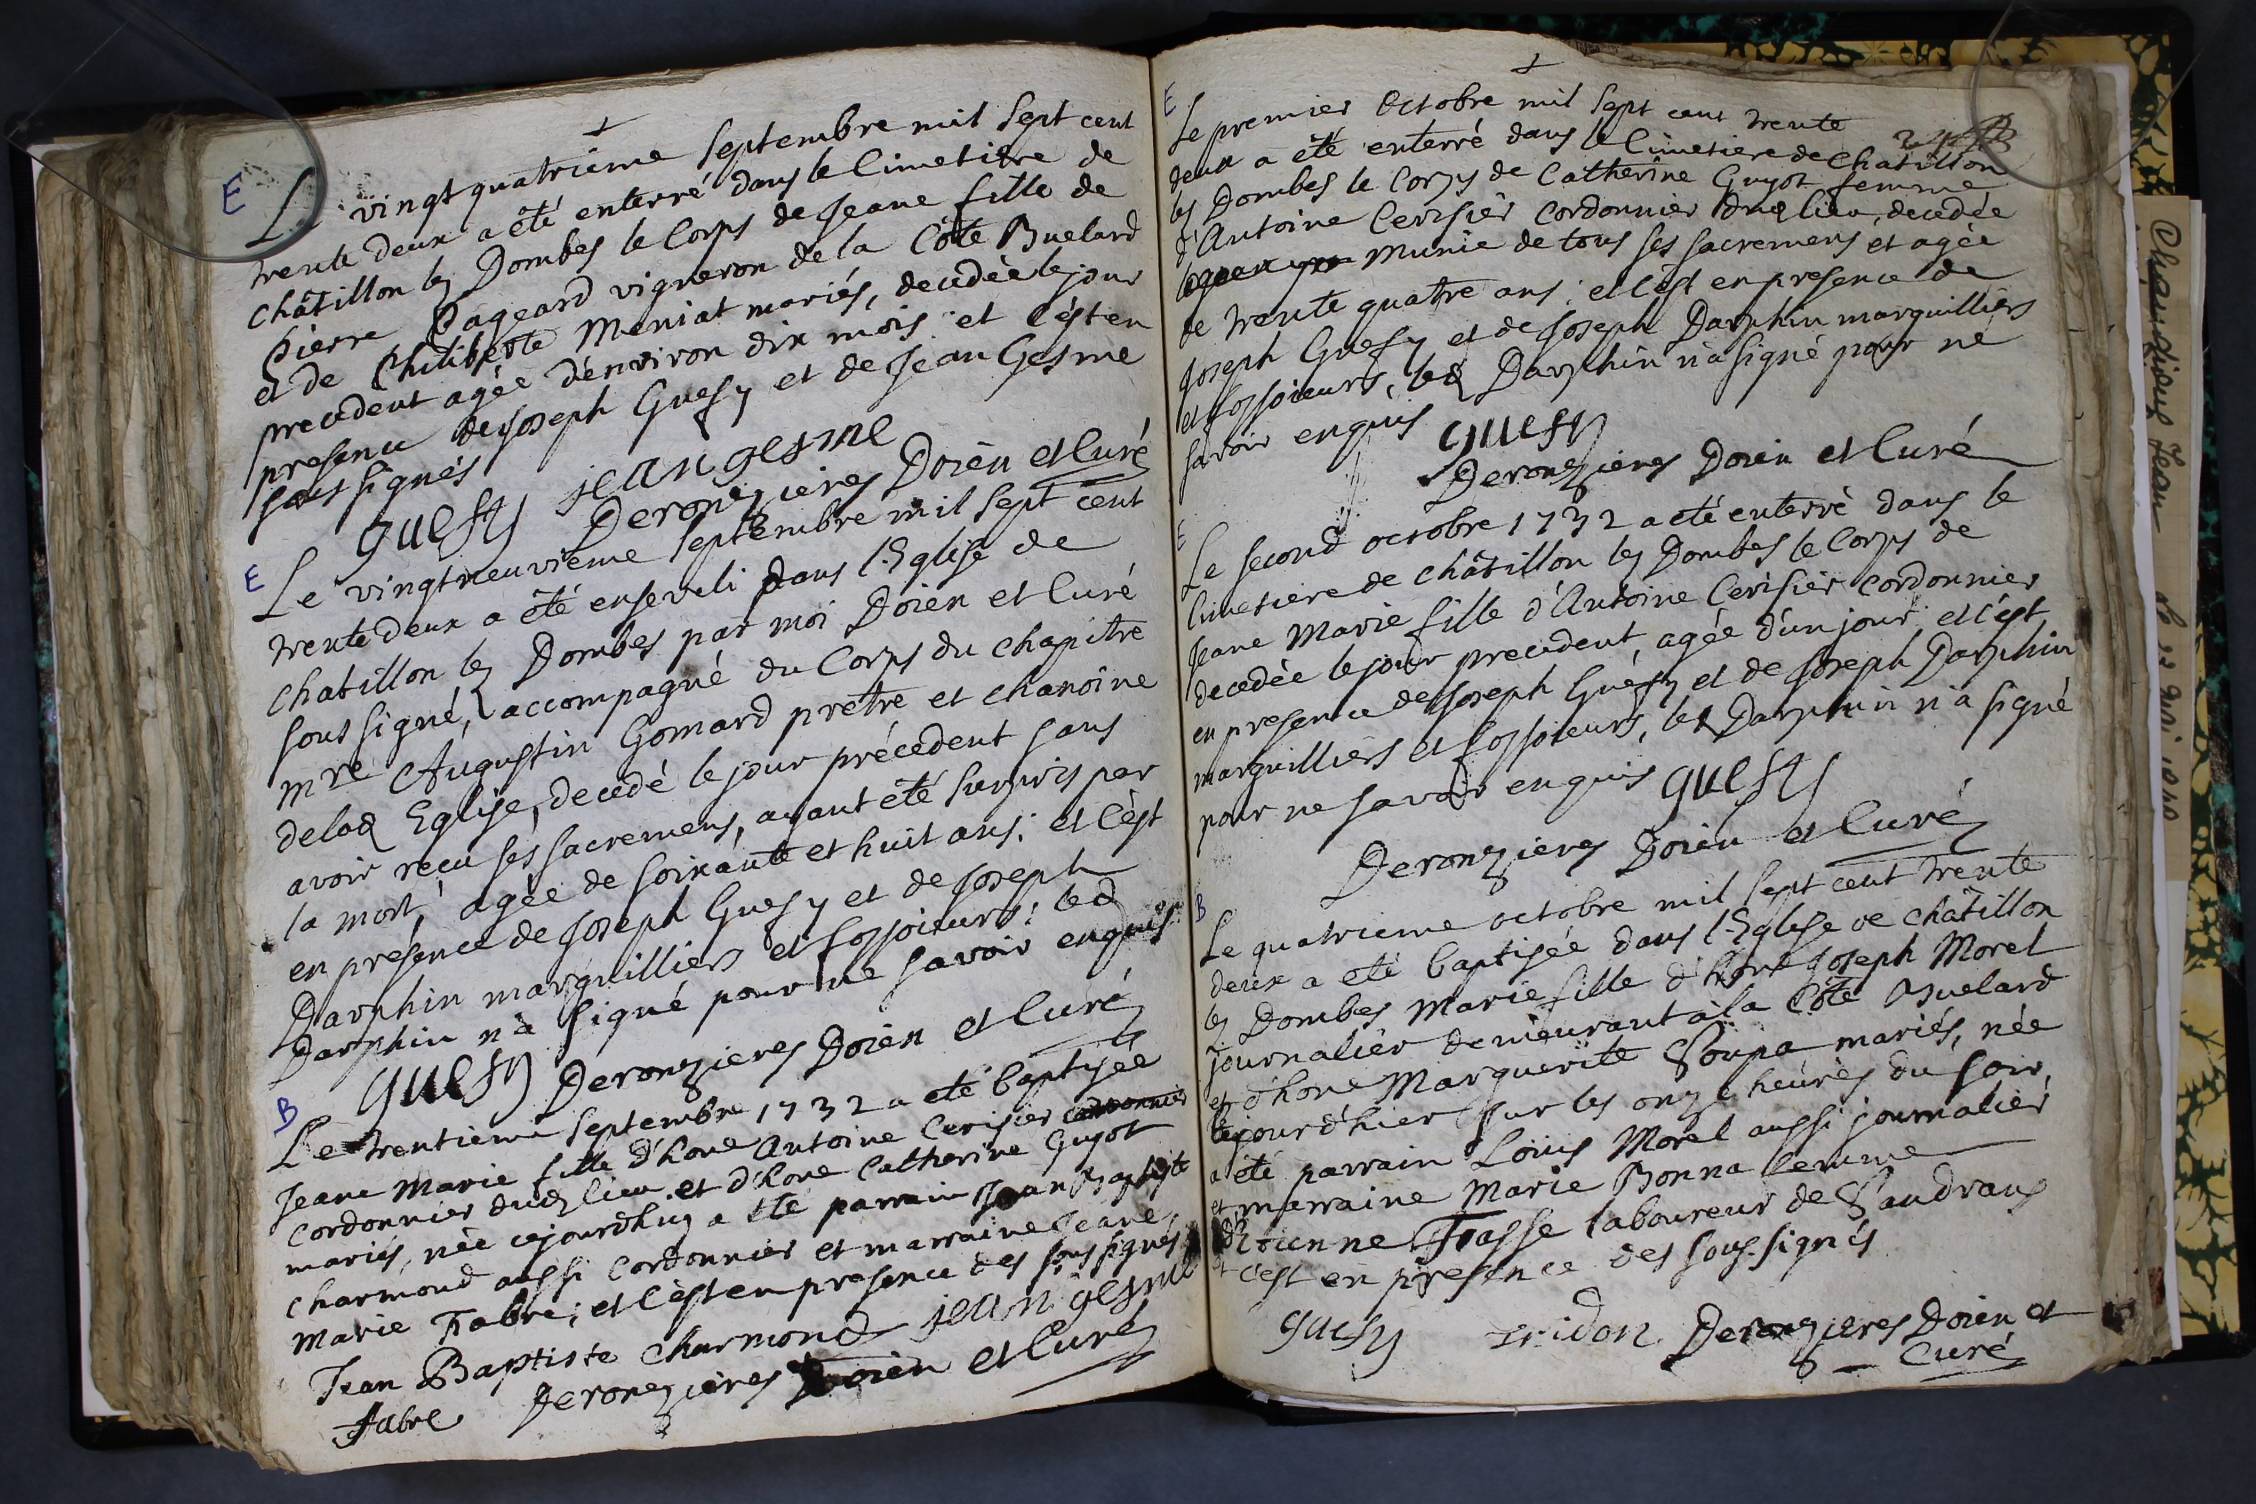 E
Le vingt quatriéme Septembre mil Sept cent
trente deux a été enterré dans le Cimetière de
châtillon lez Dombes le Corps de Jeane fille de
Pierre Pageard vigneron de la Côte Buelard
et de Philiberte Meniat mariés, decedée le jour
precedent agée d'environ dix mois et c'est en
presence de Joseph Guesy et de Jean Gesme
soussignés
guesy jean gesme
Deronzieres Doïen et Curé
E
Le vingt neuvième Septembre mil Sept cent
trente deux a été enseveli dans l'Eglise de
chatillon lez Dombes par moi Doïen et Curé
soussigné, accompagné du Corps du chapitre
mre Augustin Gomard prêtre et chanoine
delad Eglise, decedé le jour précedent sans
avoir reçu ses sacremens, ayant été surpris par
la mort, agée de soixante et huit ans; et c'est
en présence de Joseph Guesy et de Joseph
Darphin marguilliers et fossoieurs; led
Darphin n'a signé pour ne savoir enquis
guesy Deronzieres Doïen et Curé
B
Le trentieme Septembre 1732 a eté baptisée
Jeane Marie fille d'hone Antoine Cerisier cordonnier
cordonnier dud lieu et d'hone Catherine Guyot
mariés, née cejourdhuy a été parrain Jean Baptiste
charmond aussi cordonnier et marraine Jeane
Marie Fabre; et c'est en presence des soussignés
Jean Baptiste charmond jean gesme
fabre Deronzieres Doïen et Curé
E
Le premier Octobre mil Sept cent trente
deux a été enterré dans le Cimetiere de Chatillon
lez Dombes le Corps de Catherine Guyot femme
d'Antoine Cerisier cordonnier dud lieu, decedée
munie de tous ses sacremens et agée
de trente quatre ans; et c'est en presence de
Joseph Guesy et de Joseph Darphin marguilliers
et fossoieurs, led Darphin n'a signé pour ne
savoir enquis guesy
Deronzieres Doïen et Curé
E
Le second octobre 1732 a eté enterré dans le
Cimetiere de châtillon lez Dombes le Corps de
Jeane Marie fille d'Antoine Cerisier cordonnier
decedée le jour precedent, agée d'un jour et c'est
en presence de Joseph Guésy et de Joseph Darphin
marguilliers et fossoieurs, led Darphin n'a signé
pour ne savoir enquis guesy
Deronzieres Doïen et Curé
B
Le quatrieme octobre mil Sept cent trente
deux a eté baptisée dans l'Eglise de châtillon
lez Dombes Marie fille d'hone Joseph Morel
journalier demeurant à la Côte Buelard
et d'hone Marguerite Soupa mariés, née
le jour d'hier sur les onze heures du soir,
a été parrain Loüis Morel aussi journalier
et marraine Marie Bonna femme
d'Etienne Frasse laboureur de Sandrans
et c'est en presence des sous.signés
guesy Deronzieres Doïen et
Curé